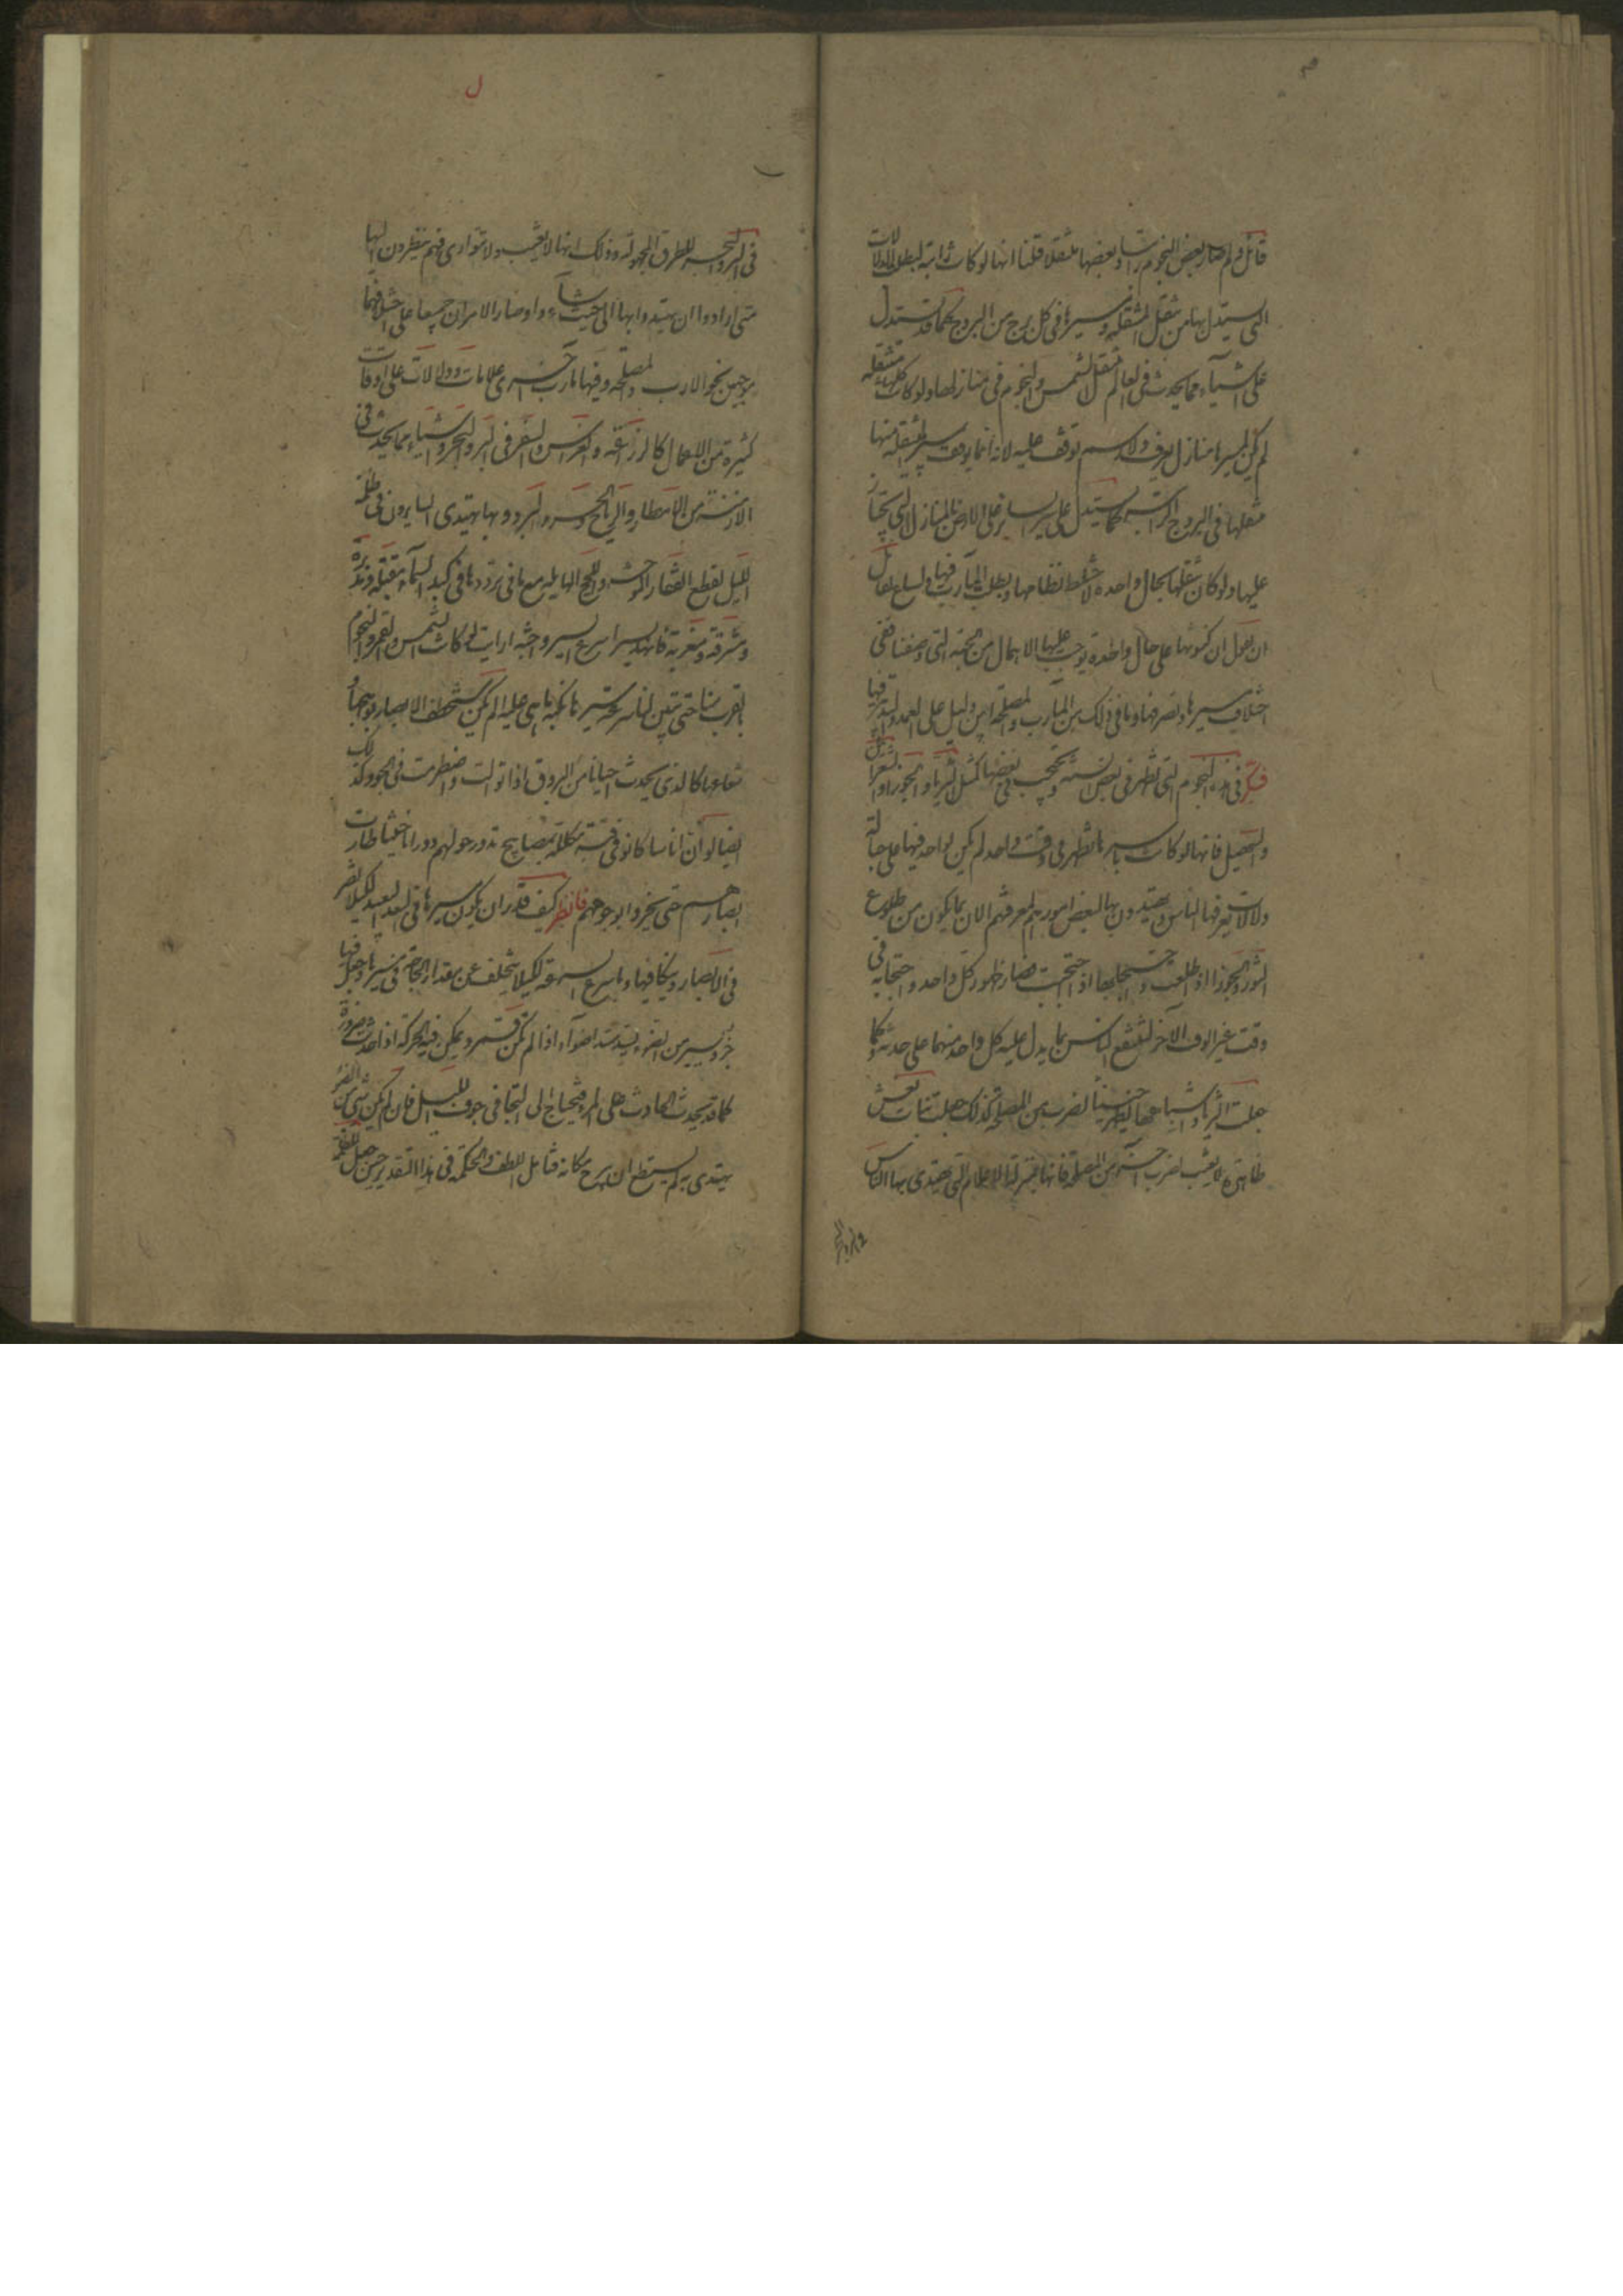 قائل ولم صار بعض النجوم راتبا وبعضها منتقلا قلنا انها لو كانت كلها راتبة لبطلت الدلالات
التى يستدل بها من تنقل المتنقلة ومسيرها فى كل برج من البروج كما قد يستدل
على اشياء مما يحدث فى العالم بتنقل الشمس والنجوم فى منازلها ولو كانت كلها متنقلة
لم يكن لمسيرها منازل تعرف ولا رسم يوقف عليه لانه انما يوقف بمسير المتنقلة منها
بتنقلها فى البروج الراتبة كما يستدل على سير السائر على الارض بالمنازل التى يجتاز
عليها ولو كان تنقلها بحال واحدة لاختلط نظامها وبطلت المآرب فيها ولساغ لقائل
ان يقول ان كينونتها على حال واحدة توجب عليها الاهمال من الجهة التى وصفنا ففى
اختلاف سيرها وتصرفها وما فى ذلك من المآرب والمصلحة ابين دليل على العمد والتدبير فيها
فكر فى هذه النجوم التى تظهر فى بعض السنة وتحتجب فى بعضها كمثل الثريا والجوزا والشعرا
وسهيل فانها لو كانت باسرها تظهر فى وقت واحد لم يكن لواحد فيها على حياله
دلالات يعرفها الناس ويهتدون بها لبعض امورهم لمعرفتهم الان بما يكون من طلوع
الثور والجوزا اذا طلعت واحتجابها اذا احتجبت فصار ظهور كل واحد واحتجابه فى
وقت غير الوقت الآخر لينتفع الناس بما يدل عليه كل واحد منهما على حدته وكما
جعلت الثريا واشباهها تظهر حينا وتحتجب حينا لضرب من المصلحة كذلك جعلت بنات نعش
ظاهرة لا تغيب لضرب آخر من المصلحة فانها بمنزلة الاعلام التى يهتدى بها الناس
فى البر والبحر للطرق المجهولة وذلك انها لا تغيب ولا تتوارى فهم ينظرون اليها
متى ارادوا ان يهتدوا بها الى حيث شاؤا وصار الامران جميعا على اختلافهما
موجهين نحو الارب والمصلحة وفيها مآرب اخرى علامات ودلالات على اوقات
كثيرة من الاعمال كالزراعة والغراس والسفر فى البر والبحر واشياء مما يحدث فى
الازمنة من الامطار والرياح والحر والبرد وبها يهتدى السايرون فى ظلمة
الليل لقطع القفار الموحشة واللجج الهايلة مع ما فى ترددها فى كبد السماء مقبلة ومدبرة
ومشرقة ومغربة فانها تسير اسرع السير واحثه ارايت لو كانت الشمس والقمر والنجوم
بالقرب منا حتى يتبين لنا سرعة سيرها بكنه ما هى عليه الم تكن ستخطف الابصار بوهجها
وشعاعها كالذى يحدث احيانا من البروق اذا توالت واضطرمت فى الجو وكذلك
ايضا لو ان اناسا كانوا فى قبة مكللة بمصابيح تدور حولهم دورانا حثيثا لحارت
ابصارهم حتى يخروا لوجوههم فانظر كيف قدر ان يكون مسيرها فى البعد البعيد لكيلا تضر
فى الابصار وينكا فيها وباسرع السرعة لكيلا يتخلف عن مقدار الحاجة فى مسيرها وجعل فيها
جزء يسير من الضوء ليسد مسد اضواء اذا لم يكن قمر ويمكن فيه الحركة اذا حدثت ضرورة
كما قد يحدث الحادث على المرء فيحتاج الى التجافى جوف الليل فان لم يكن شى من الضوء
يهتدى به لم يستطع ان يبرح مكانه فتامل اللطف والحكمة فى هذا التقدير حين جعل للظلمة